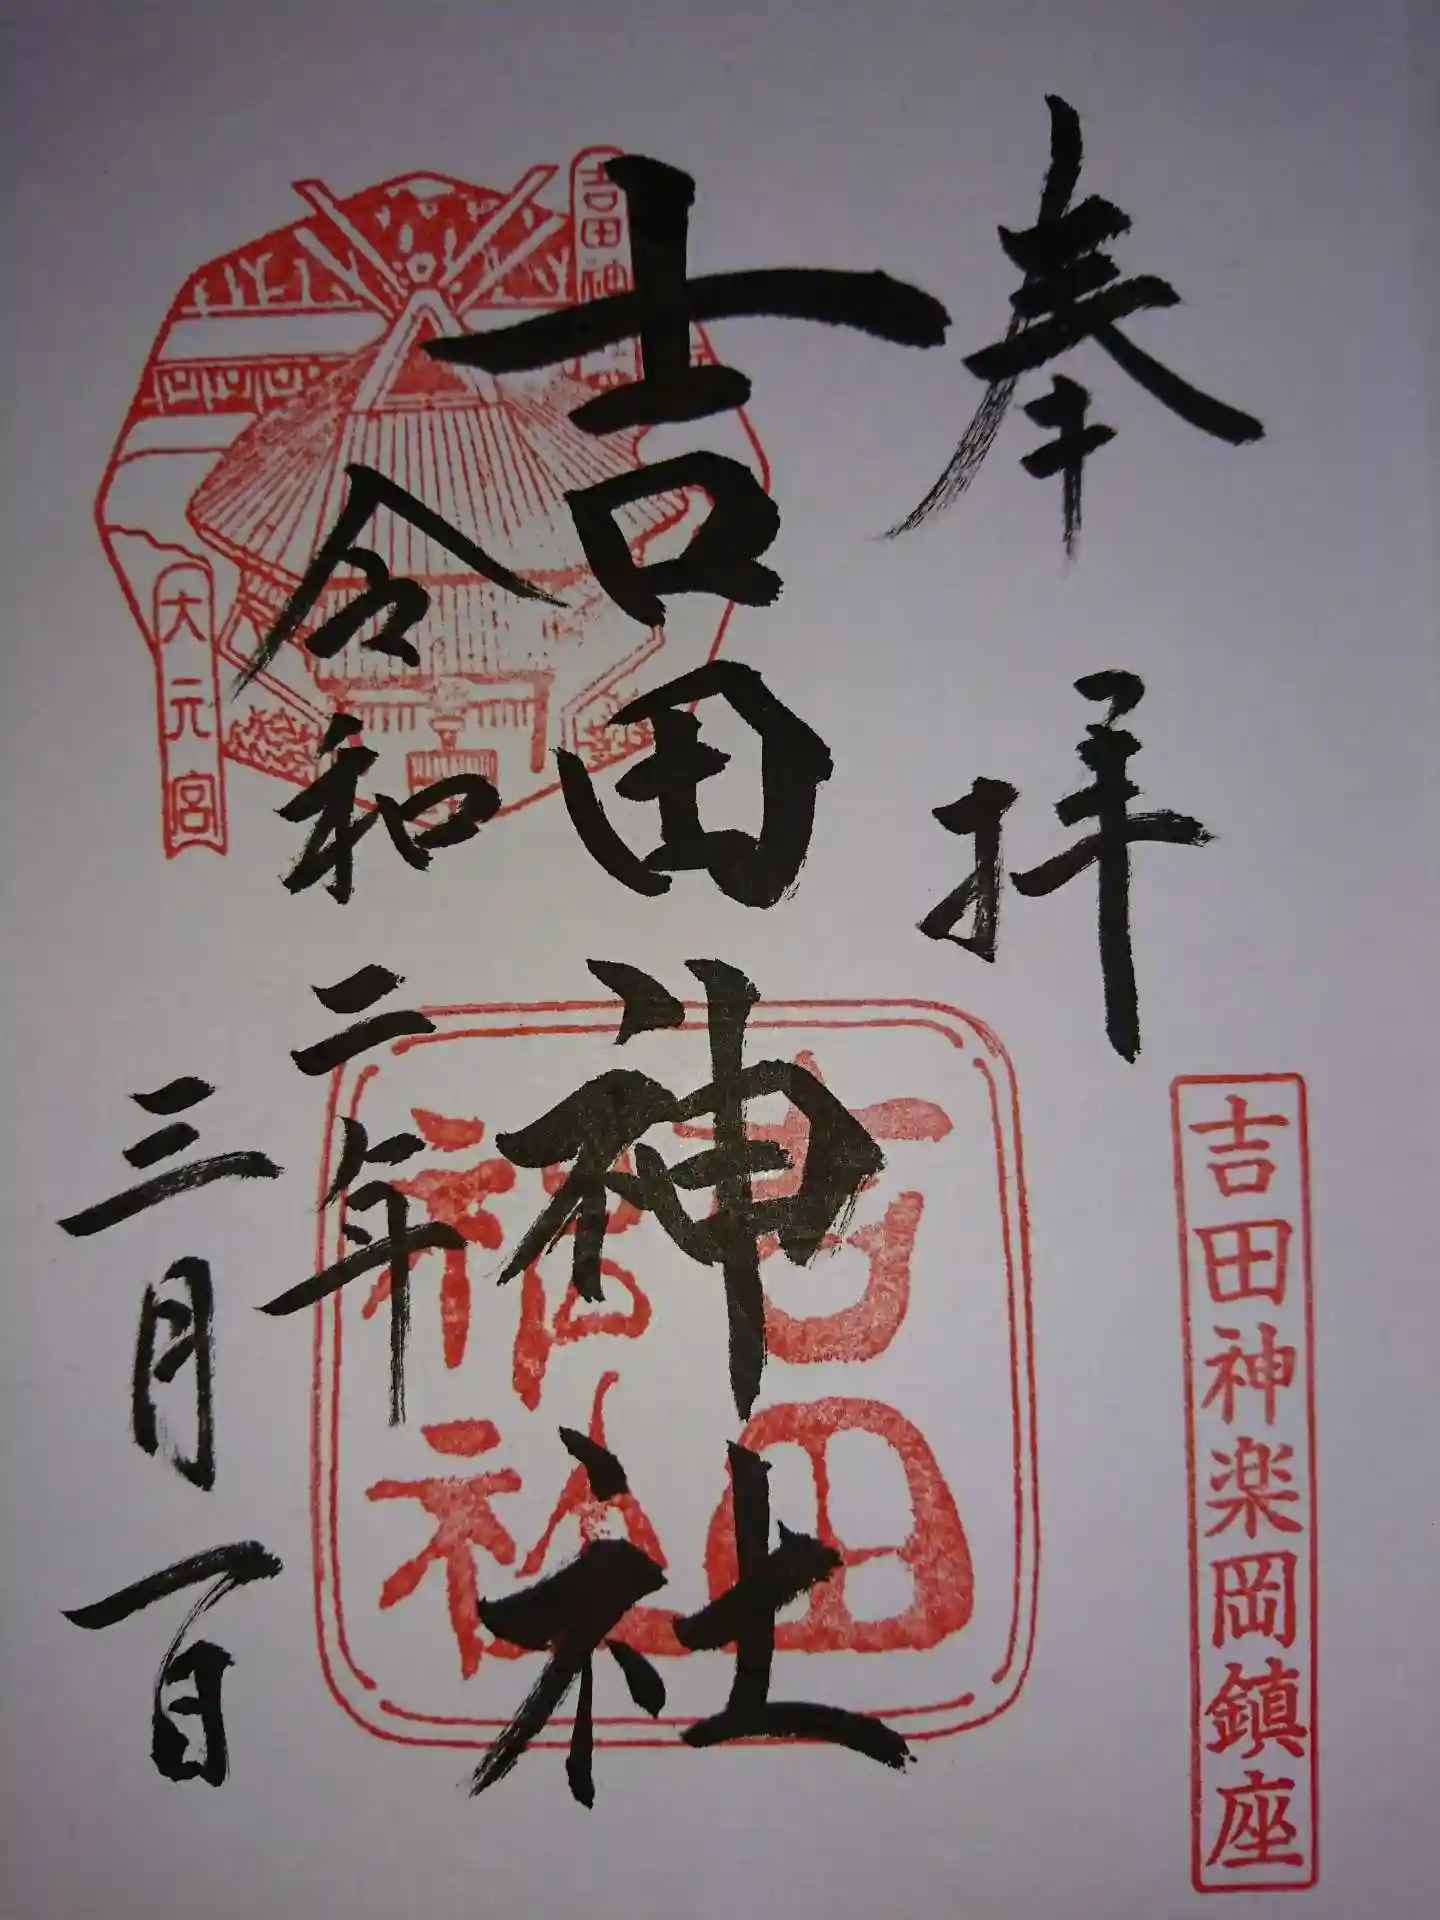 奉拝
吉田神楽岡鎮座
吉田神社
吉田神社
令和二年
三月一日
吉田神
大元宮